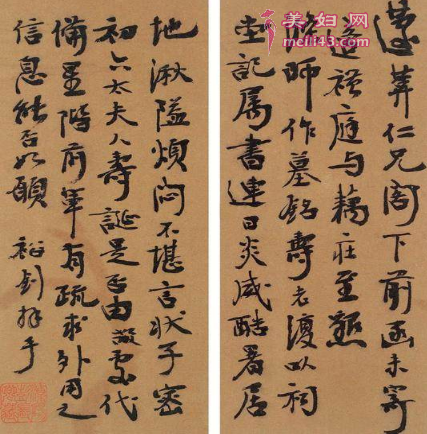 美妇网
meli43.com
仁兄閣下前函未寄
禧庭与藕莊至懇
師作墓銘壽老復以祠
堂記属書連日炎威酷暑居
地湫隘煩悶不堪言狀子密
初六太夫人壽誕是否由敝處代
備星階前年有疏求外用之
信息能否如願 裕釗拜手